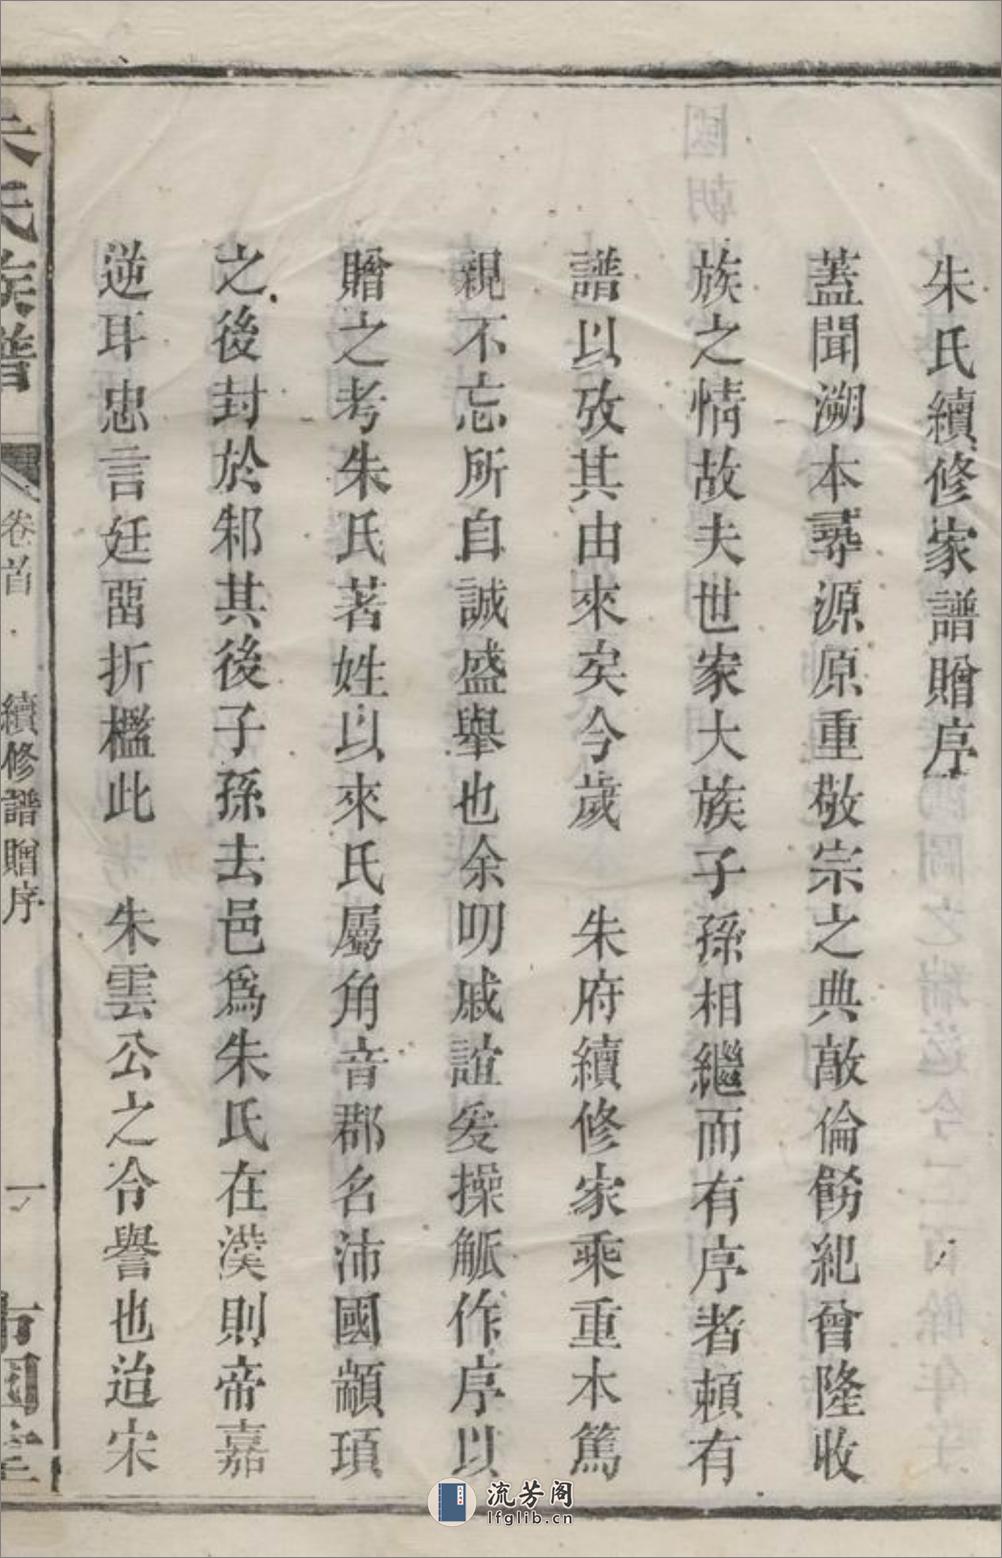 朱氏續修家譜贈序
蓋聞溯本尋源原重敬宗之典敵倫餝紀曾隆收
族之情故夫世家大族子孫相繼而有序者頼有
譜以攷其由來矣今歲 朱府續修家乘重木篤
親不忘所自誠盛舉也余叨戚誼爰操觚作序以
贈之考朱氏著姓以來氏屬角音郡名沛國顓頊
之後封於邾其後子孫去邑爲朱氏在漢則帝嘉
逆耳忠言廷畱折檻此 朱雲公之令譽也迨宋
朱氏族譜 卷首 續修譜贈序 一
流芳阁
lfglib.cn